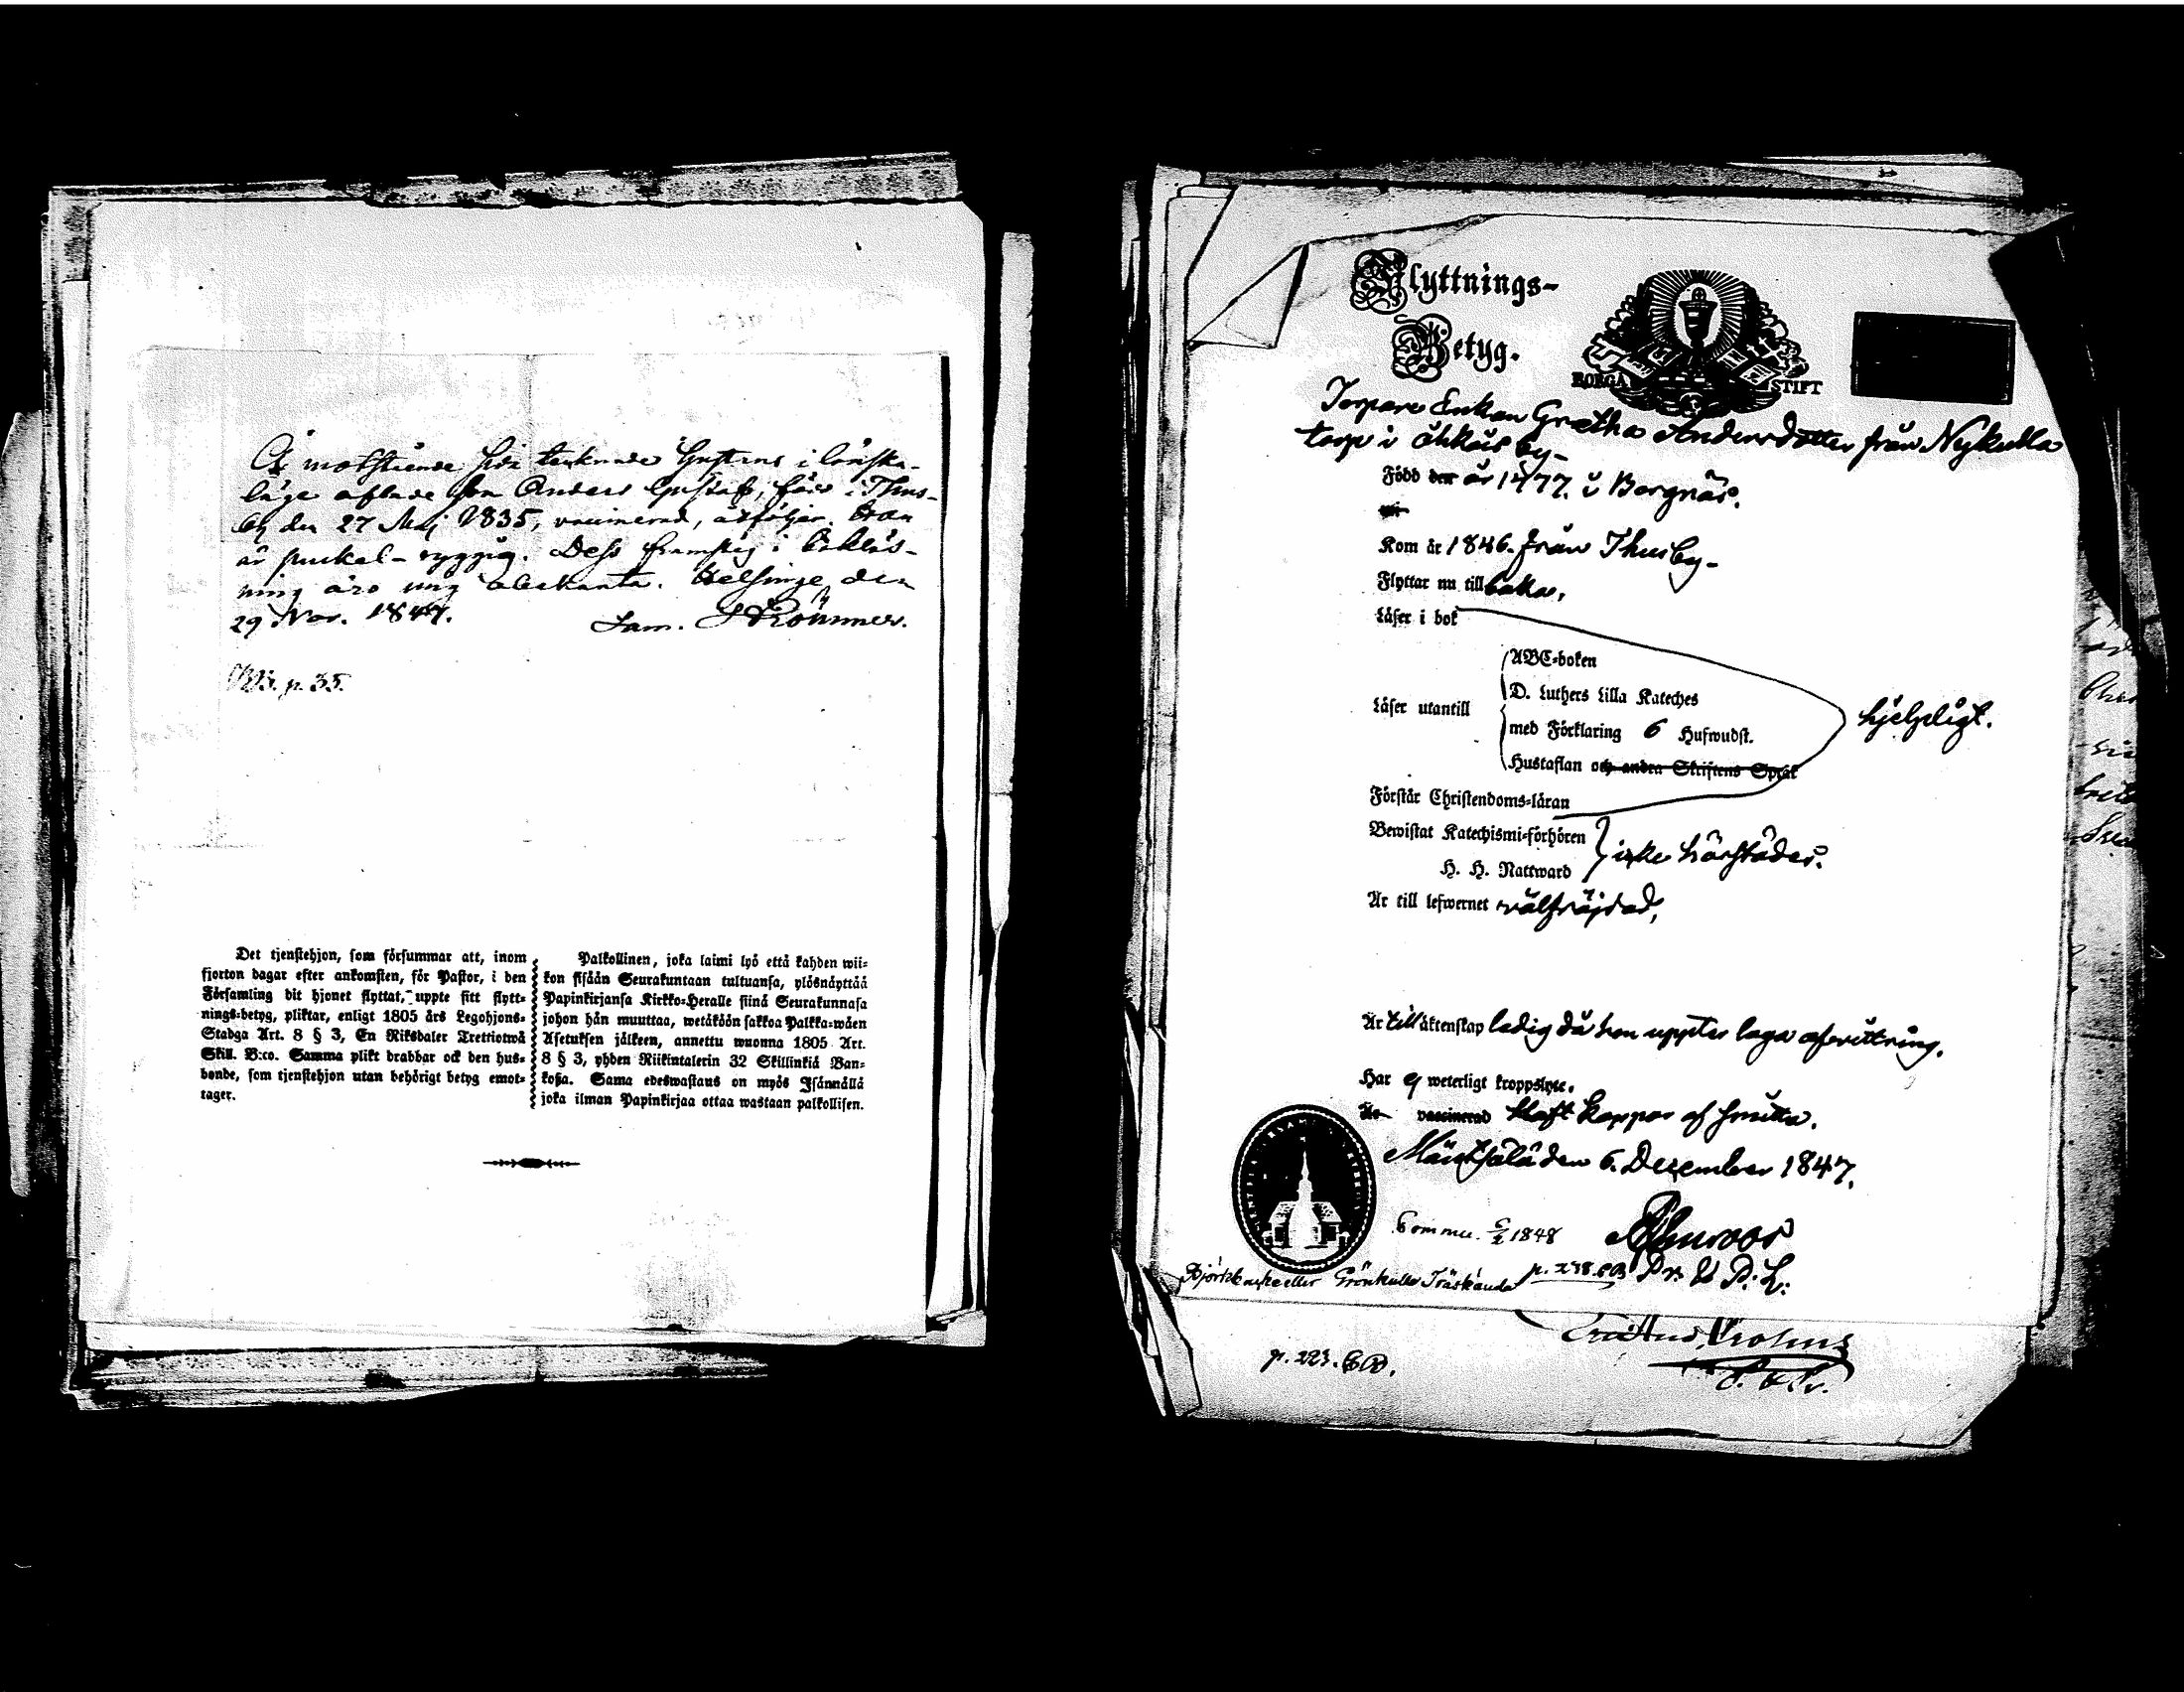 Å motstående sida tecknade Gustavs i lönska-
läge aflade son Anders Gustaf, född i Thus-
by den 27 Maj 1835, vaccinerad, åtföljer. Han
är puckel-ryggig. Dess framsteg i bokläs-
ning äro mig obekanta. Helsinge den
29 Nov. 1847. Sam.
p. 35.
Det tjenstehjon, som försummar att, inom
fjorton dagar efter ankomsten, för Pastor, i den
Församling dit hjonet flyttat, uppte sitt flytt-
nings-betyg, pliktar, enligt 1805 års Legohjons-
Stadga Art. 8 § 3, En Riksdaler Trettiotwå
Skill. B:co. Samma plikt drabbar ock den hus-
bonde, som tjenstehjon utan behörigt betyg emot-
tager.
Palkollinen, joka laimi lyö että kahden wii-
kon sisään Seurakuntaan tultuansa, ylösnäyttää
Papinkirjansa Kirkko-Heralle siinä Seurakunnasa
johon hän muuttaa, wetäköön sakkoa Palkka-wäen
Asetuksen jälkeen, annettu wuonna 1805 Art.
8 § 3, yhden Riikintalerin 32 Skillinkiä Ban-
koßa. Sama edeswastaus on myös Isännällä
joka ilman Papinkirjaa ottaa wastaan palkollisen.
Flyttnings-
Betyg.
BORGÅ STIFT
Torpare Enkan Gretha Andersdotter från Nykulla
torp i Ohkois by-
Född den år 1777. i Borgnäs.
Kom år 1846. från Thusby-
Flyttar nu tillbaka,
Läser i bok
Läser utantill
ABC-boken
D. Luthers Lilla Kateches
med Förklaring 6 Hufwudst.
Hustaflan och andra Skriftens Språk
hjelpligt.
Förstår Christendoms-läran
Bewistat Katechismi-förhören
H. H. Nattward
icke härstädes.
Är till lefwernet välfräjdad,
Är till äktenskap ledig då hon uppter laga afvittring.
Har ej weterligt kroppslyte.
Är vaccinerad haft koppor af smitta.
Mäntsälä den 6. December 1847.
1848
p. 238. CB
Träskända
p. 223. CB.